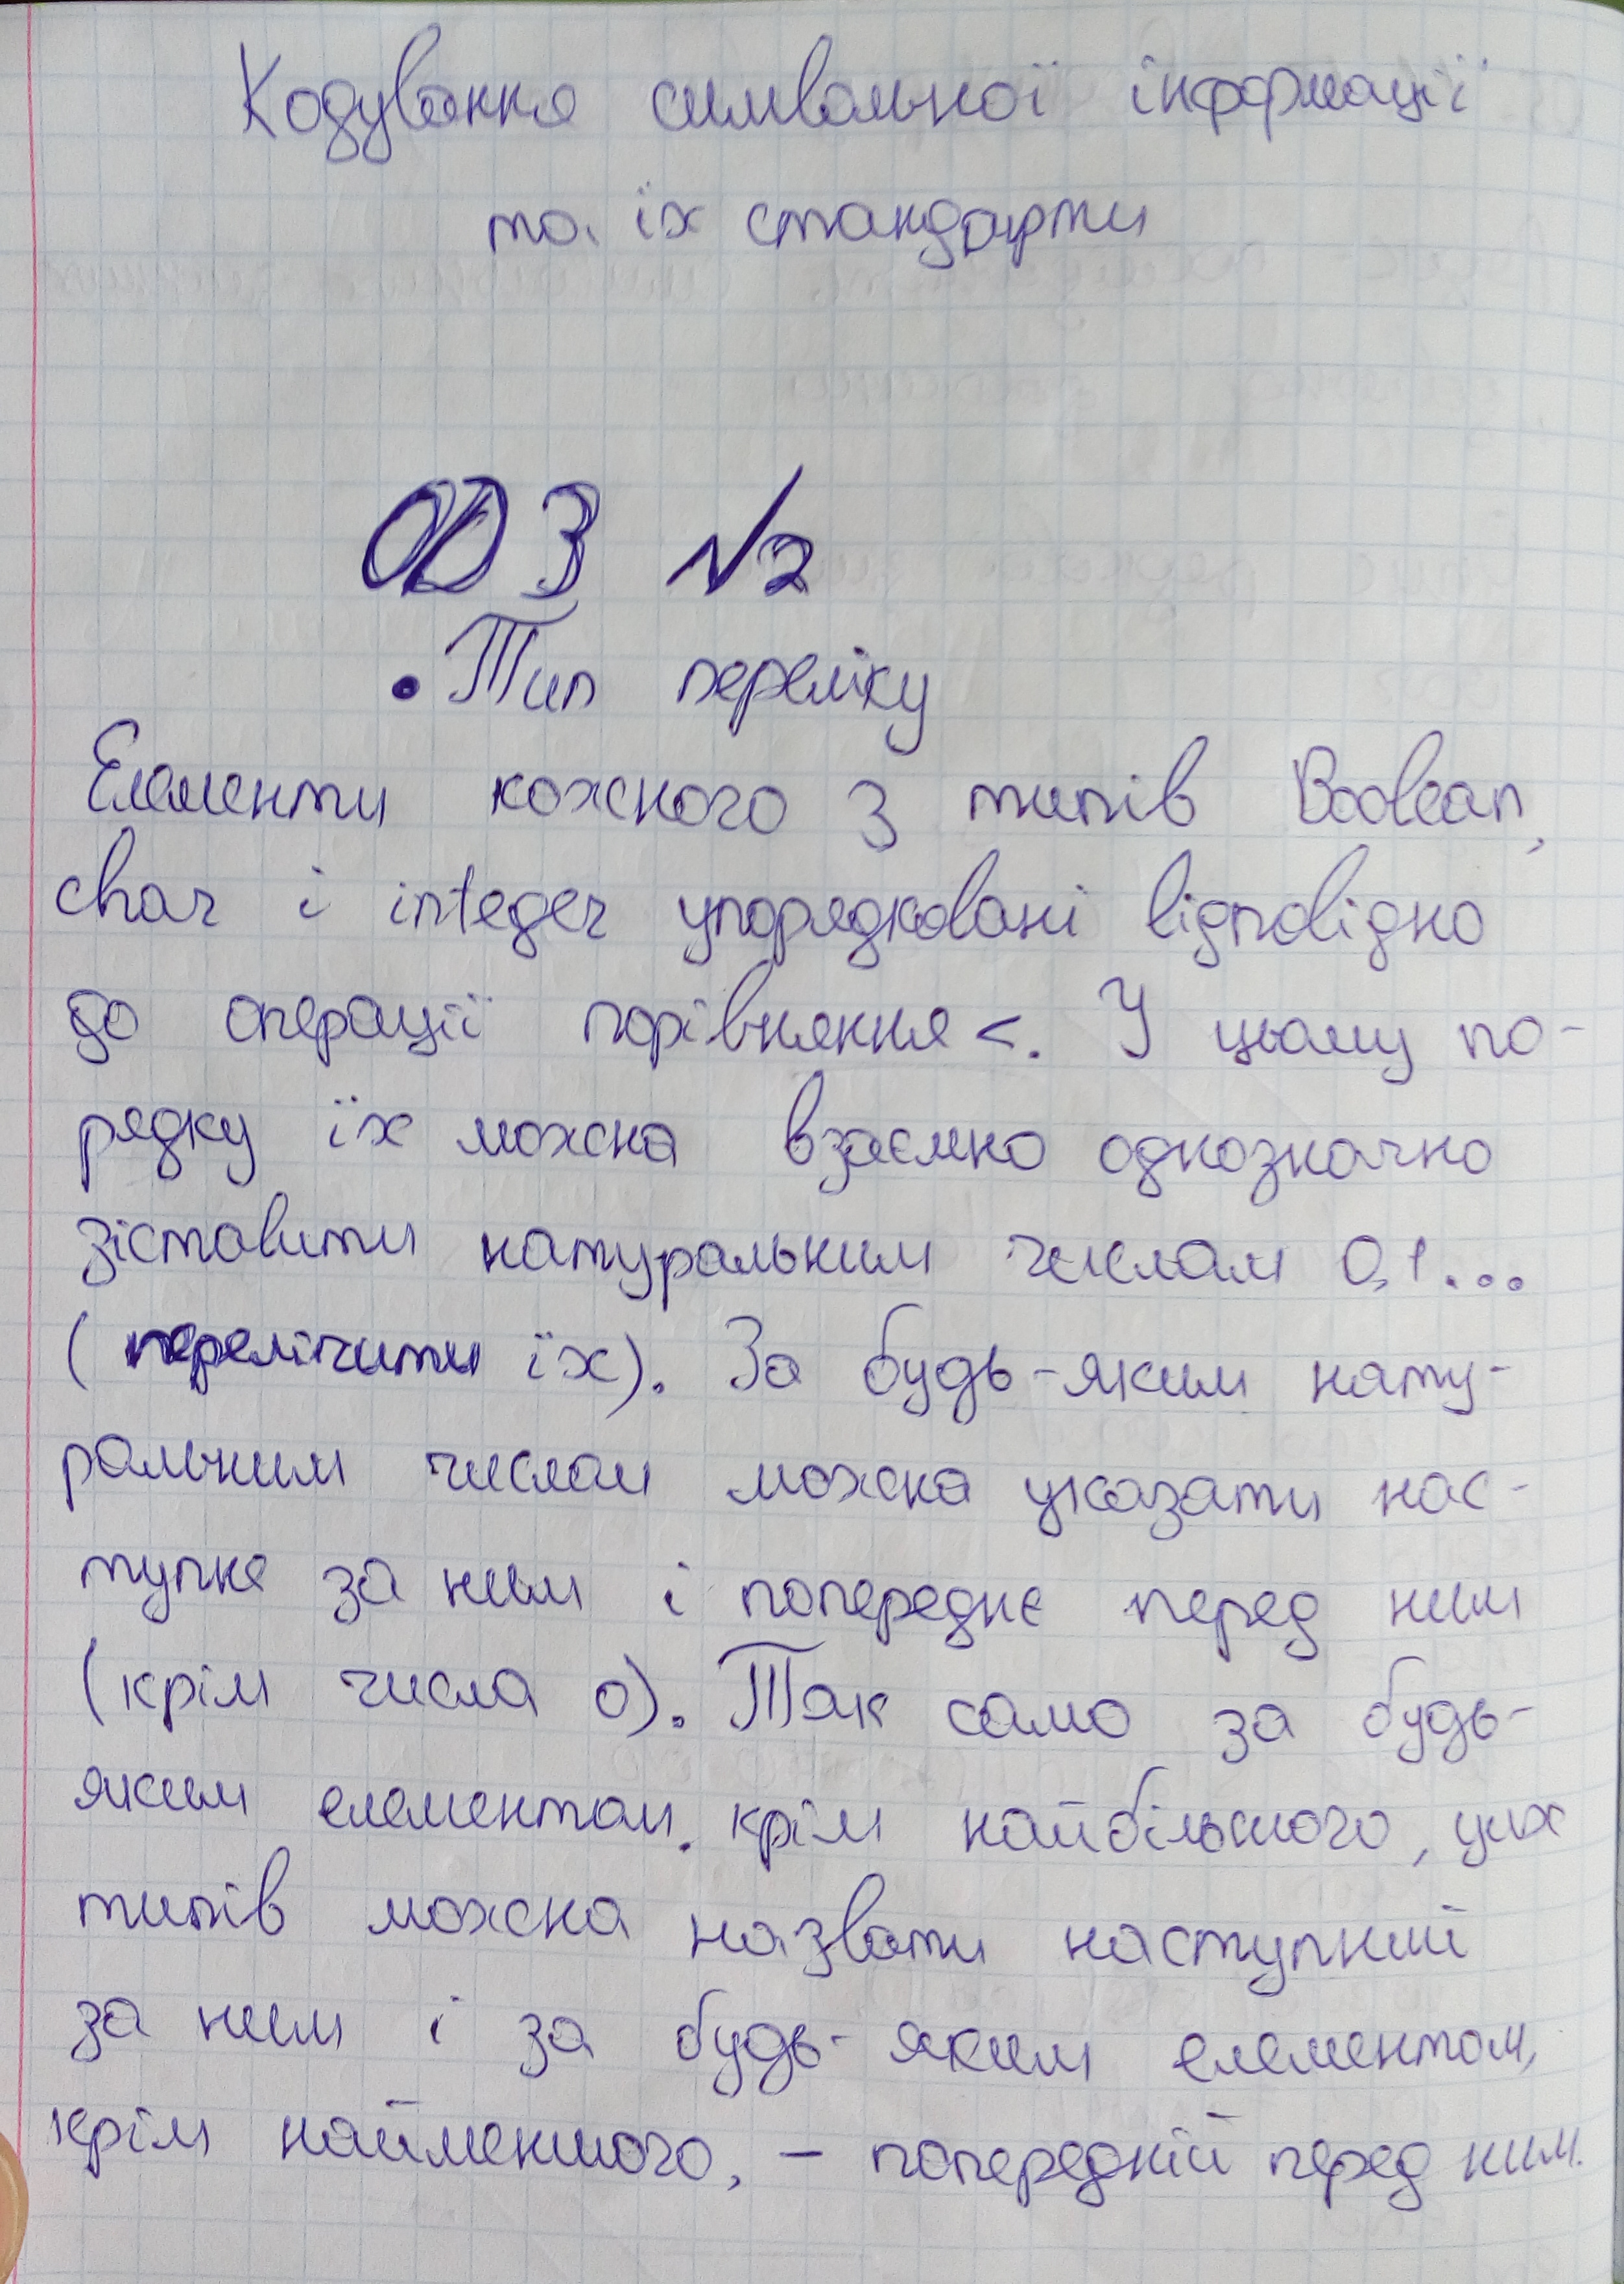 Кодування символьної інформації
та їх стандарти
ОДЗ №2
• Тип переліку
Елементи кожного з типів Boolean,
char і integer упорядковані відповідно
до операції порівняння <. У цьому по-
рядку їх можна взаємно однозначно
зіставити натуральним числам 0,1...
(перелічити їх). За будь-яким нату-
ральним числом можна указати нас-
тупне за ним і попереднє перед ним
(крім числа 0). Так само за будь-
яким елементом, крім найбільшого, цих
типів можна назвати наступний
за ним і за будь-яким елементом,
крім найменшого, – попередній перед ним.